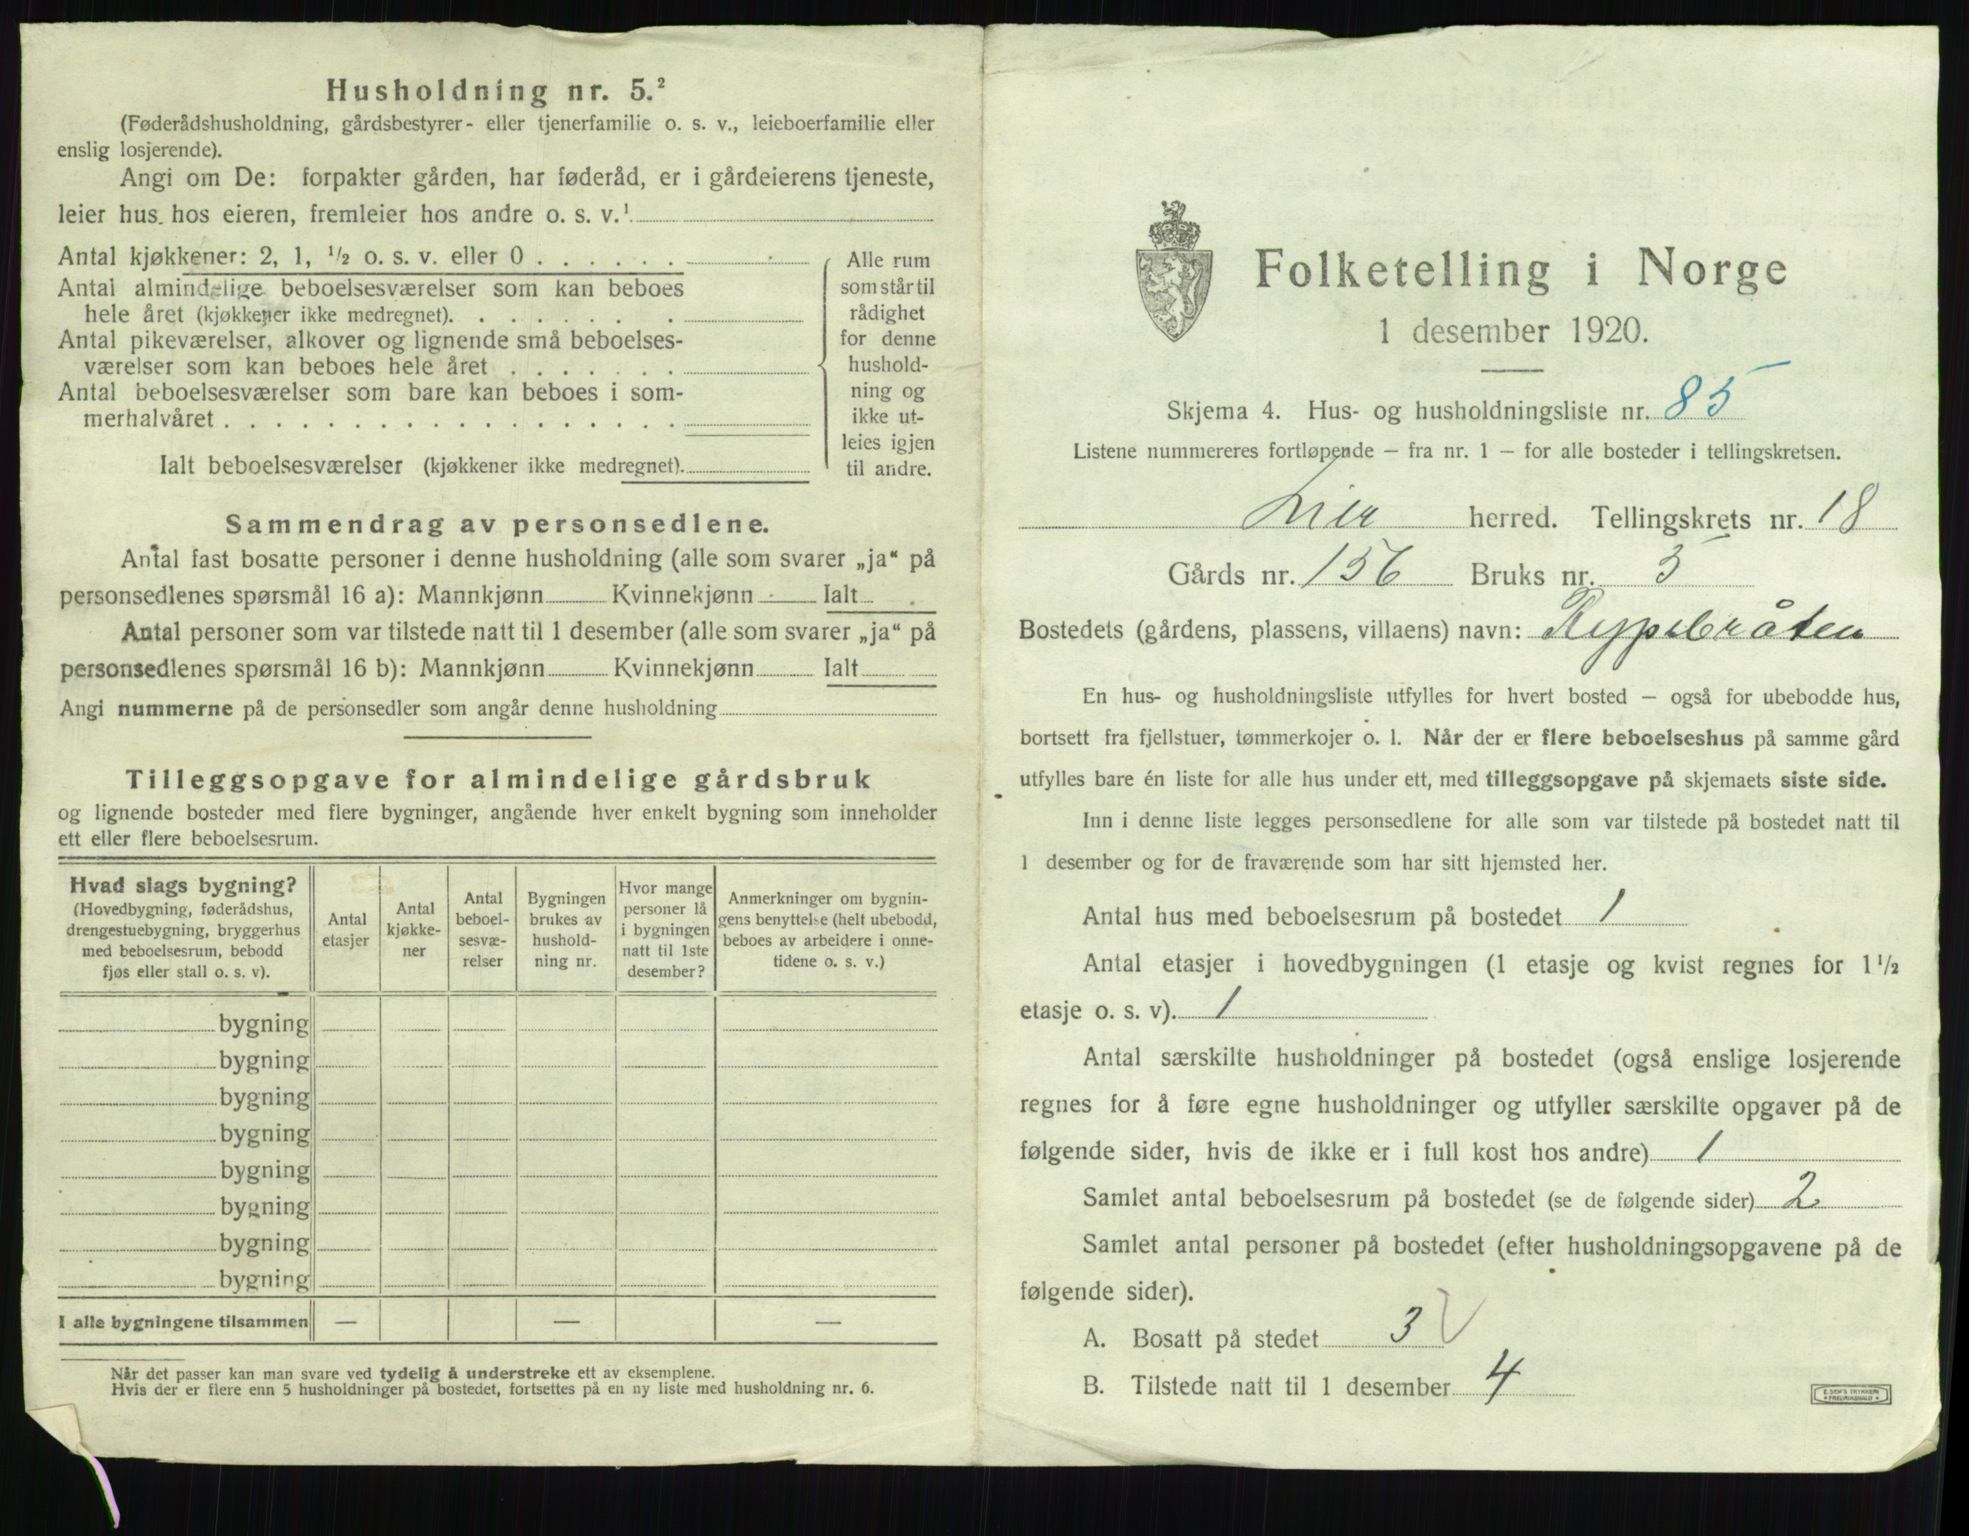 Husholdning nr. 5.²
(Føderådshusholdning, gårdsbestyrer- eller tjenerfamilie o. s. v., leieboerfamilie eller
enslig losjerende).
Angi om De: forpakter gården, har føderåd, er i gårdeierens tjeneste,
leier hus hos eieren, fremleier hos andre o. s. v.¹
Antal kjøkkener: 2, 1, ½ o. s. v. eller 0 . . . . . .
Antal almindelige beboelsesværelser som kan beboes
hele året (kjøkkener ikke medregnet). . . . . . . .
Antal pikeværelser, alkover og lignende små beboelses-
værelser som kan beboes hele året . . . . . . .
Antal beboelsesværelser som bare kan beboes i som-
merhalvåret . . . . . . . . . . . . . . . . . .
Ialt beboelsesværelser (kjøkkener ikke medregnet).
Alle rum
som står til
rådighet
for denne
hushold-
ning og
ikke ut-
leies igjen
til andre.
Sammendrag av personsedlene.
Antal fast bosatte personer i denne husholdning (alle som svarer „ja“ på
personsedlenes spørsmål 16 a): Mannkjønn Kvinnekjønn Ialt
Antal personer som var tilstede natt til 1 desember (alle som svarer „ja“ på
personsedlenes spørsmål 16 b): Mannkjønn Kvinnekjønn Ialt
Angi nummerne på de personsedler som angår denne husholdning
Tilleggsopgave for almindelige gårdsbruk
og lignende bosteder med flere bygninger, angående hver enkelt bygning som inneholder
ett eller flere beboelsesrum.
Hvad slags bygning?
(Hovedbygning, føderådshus,
drengestuebygning, bryggerhus
med beboelsesrum, bebodd
fjøs eller stall o. s. v).
Antal
etasjer
Antal
kjøkke-
ner
Antal
beboel-
sesvæ-
relser
Bygningen
brukes av
hushold-
ning nr.
Hvor mange
personer lå
i bygningen
natt til 1ste
desember?
Anmerkninger om bygnin-
gens benyttelse (helt ubebodd,
beboes av arbeidere i onne-
tidene o. s. v.)
bygning
bygning
bygning
bygning
bygning
bygning
bygning
bygning
I alle bygningene tilsammen — — —
Når det passer kan man svare ved tydelig å understreke ett av eksemplene.
Hvis der er flere enn 5 husholdninger på bostedet, fortsettes på en ny liste med husholdning nr. 6.
Folketelling i Norge
1 desember 1920.
Skjema 4. Hus- og husholdningsliste nr. 85
Listene nummereres fortløpende – fra nr. 1 – for alle bosteder i tellingskretsen.
Lier herred. Tellingskrets nr. 18
Gårds nr. 156 Bruks nr. 5
Bostedets (gårdens, plassens, villaens) navn: Rypebråten
En hus- og husholdningsliste utfylles for hvert bosted – også for ubebodde hus,
bortsett fra fjellstuer, tømmerkojer o. l. Når der er flere beboelseshus på samme gård
utfylles bare én liste for alle hus under ett, med tilleggsopgave på skjemaets siste side.
Inn i denne liste legges personsedlene for alle som var tilstede på bostedet natt til
1 desember og for de fraværende som har sitt hjemsted her.
Antal hus med beboelsesrum på bostedet 1
Antal etasjer i hovedbygningen (1 etasje og kvist regnes for 1½
etasje o. s. v). 1
Antal særskilte husholdninger på bostedet (også enslige losjerende
regnes for å føre egne husholdninger og utfyller særskilte opgaver på de
følgende sider, hvis de ikke er i full kost hos andre) 1
Samlet antal beboelsesrum på bostedet (se de følgende sider) 2
Samlet antal personer på bostedet (efter husholdningsopgavene på de
følgende sider).
A. Bosatt på stedet 3
B. Tilstede natt til 1 desember 4